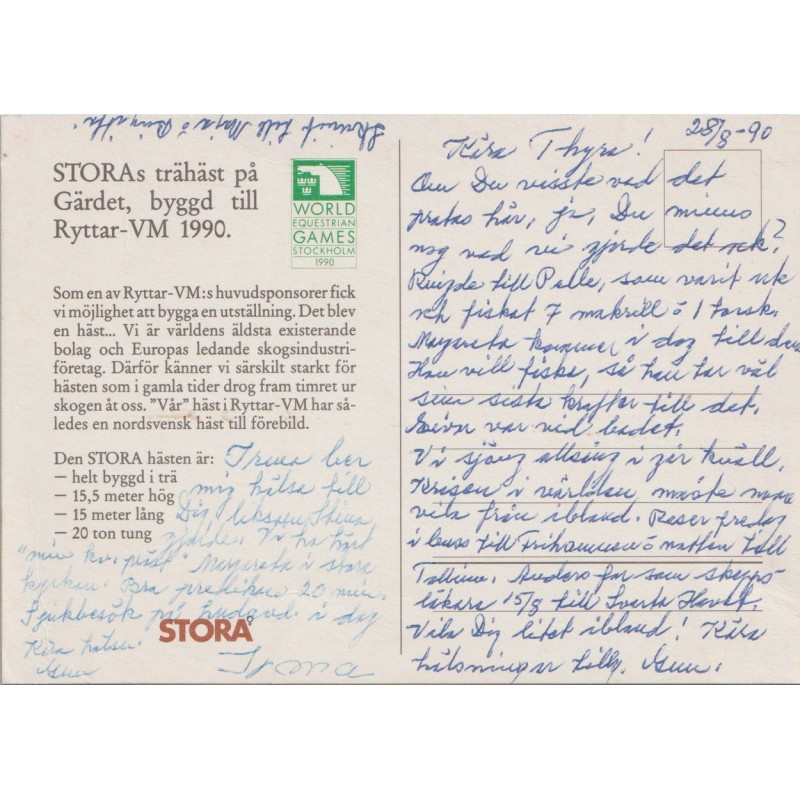 Skrivit till Maja o Birgitta.
STORAs trähäst på
Gärdet, byggd till
Ryttar-VM 1990.
WORLD
EQUESTRIAN
GAMES
STOCKHOLM
1990
Som en av Ryttar-VM:s huvudsponsorer fick
vi möjlighet att bygga en utställning. Det blev
en häst... Vi är världens äldsta existerande
bolag och Europas ledande skogsindustri-
företag. Därför känner vi särskilt starkt för
hästen som i gamla tider drog fram timret ur
skogen åt oss. "Vår" häst i Ryttar-VM har så-
ledes en nordsvensk häst till förebild.
Den STORA hästen är:
– helt byggd i trä
– 15,5 meter hög
– 15 meter lång
– 20 ton tung
ber
mig hälsa till
Dig liksom
gjorde. Vi ha hört
"min kv. präst" Margareta i stora
kyrkan. Bra predikan 20 min.
Sjukbesök på i dag
Kära hälsn.
Gun
STORA
28/8-90
Kära Thyra!
Om Du visste vad det
pratas här, ja, Du minns
nog vad vi gjorde det ock?
Ringde till Pelle, som varit ute
och fiskat 7 makrill o 1 torsk.
Margareta kommer i dag till dem
Han vill fiska, så han tar väl
sina sista krafter till det.
var vid badet.
Vi sjöng allsång i går kväll.
Krisen i världen måste man
vila från ibland. Reser fredag
i buss till Frihamnen o natten till
Tallinn. Anders far som skepps-
läkare 15/9 till Svarta Havet.
Vila Dig litet ibland! Kära
hälsningar Gun.